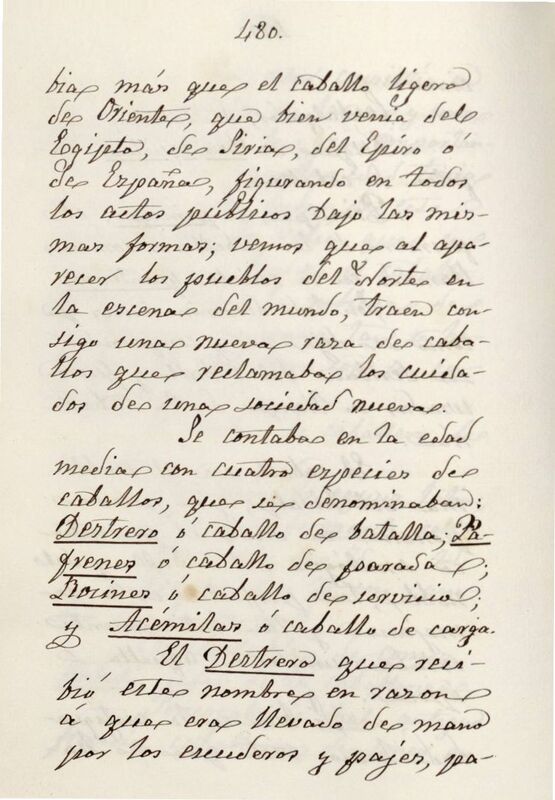 480.
bia más que el caballo ligero
de Oriente, que bien venia del
Egipto, de Siria, del Epiro ó
de España, figurando en todos
los actos públicos bajo las mis-
mas formas; vemos que al apa-
recer los pueblos del Norte en
la escena del mundo, traen con-
sigo una nueva raza de caba-
llos que reclamaba los cuida-
dos de una sociedad nueva.
Se contaba en la edad
media con cuatro especies de
caballos, que se denominaban:
Destrero ó caballo de batalla; Pa-
frenes ó caballo de parada;
Rocines ó caballo de servicio;
y Acémilas ó caballo de carga.
El Destrero que reci-
bió este nombre en razon
á que era llevado de mano
por los escuderos y pajes, pa-